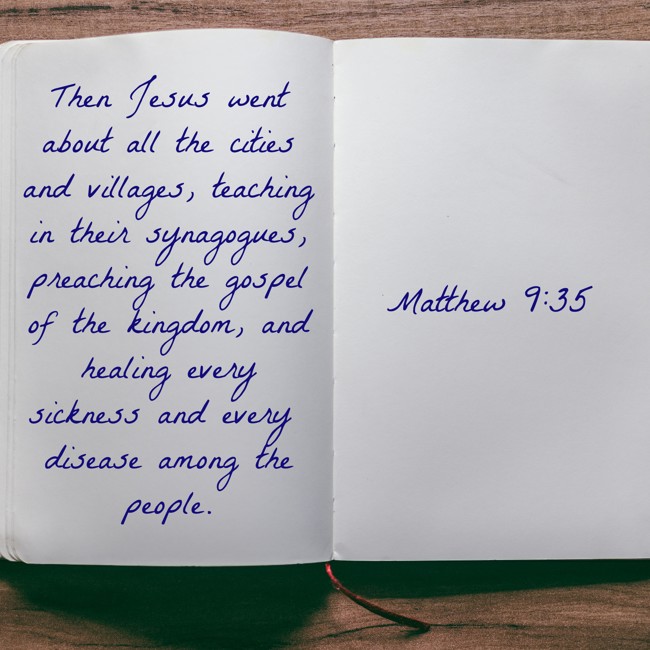 Then Jesus went
about all the cities
and villages, teaching
in their synagogues,
preaching the gospel
of the kingdom, and
healing every
sickness and every
disease among the
people.
Matthew 9:35